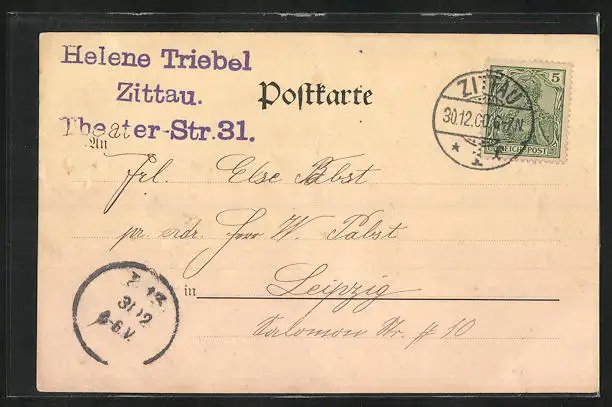 Helene Triebel
Zittau.
Theater-Str. 31.
Postkarte
ZITTAU
30.12.00. 6-7N
5
REICHSPOST
An
Frl. Else Pabst
pr. adr. Herr W. Pabst
in Leipzig
Salomon Str. # 10
31 12
6.V.